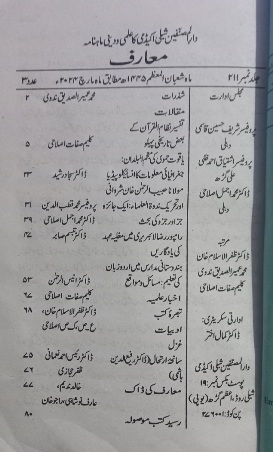 دارالمصنفین شبلی اکیڈمی کا علمی و دینی ماہنامہ
معارف
جلد نمبر ۲۱۱
ماہ شعبان المعظم ۱۴۴۵ھ مطابق ماہ مارچ ۲۰۲۴ء
عدد ۳
مجلس ادارت
پروفیسر شریف حسین قاسمی
دہلی
پروفیسر اشتیاق احمد ظلی
علی گڑھ
ڈاکٹر محمد اجمل اصلاحی
دہلی
مرتبہ
ڈاکٹر ظفر الاسلام خان
محمد عمیر الصدیق ندوی
کلیم صفات اصلاحی
ادارتی سکریٹری:
ڈاکٹر کمال اختر
دارالمصنفین شبلی اکیڈمی
پوسٹ بکس نمبر: ۱۹
شبلی روڈ، اعظم گڑھ (یوپی)
پن کوڈ: ۲۷۶۰۰۱
شذرات
محمد عمیر الصدیق ندوی
۲
مقالات
تفسیر نظام القرآن کے
بعض تاریخی پہلو
کلیم صفات اصلاحی
۵
یاقوت حموی کی معجم البلدان:
جغرافیائی معلومات کا انسائیکلوپیڈیا
۲۳
مولانا حبیب الرحمٰن خان شروانی
اور تحریک ندوۃ العلماء: ایک جائزہ
پروفیسر محمد قطب الدین
۳۱
جزر اور جزہ کی بحث
ڈاکٹر محمد اجمل اصلاحی
۳۹
رامپور رضا لائبریری میں مغلیہ عہد
کی یادگاریں
ڈاکٹر تبسم صابر
۴۷
ہندوستانی مدارس میں اردو زبان
کی تعلیم: مسائل و مواقع
ڈاکٹر انیس الرحمٰن
۵۳
اخبار علمیہ
کلیم صفات اصلاحی
۶۷
تبصرۂ کتب
ڈاکٹر ظفر الاسلام خان،
۶۸
ع۔ص، ک۔ص اصلاحی
ادبیات
غزل
ڈاکٹر رئیس احمد نعمانی
۷۵
سانحۂ ارتحال (رفیع الدین
ہاشمی)
ظفر حجازی
۷۶
معارف کی ڈاک
خالد ندیم،
۷۷
عارف نوشاہی، راجو خان
رسید کتب موصولہ
۸۰